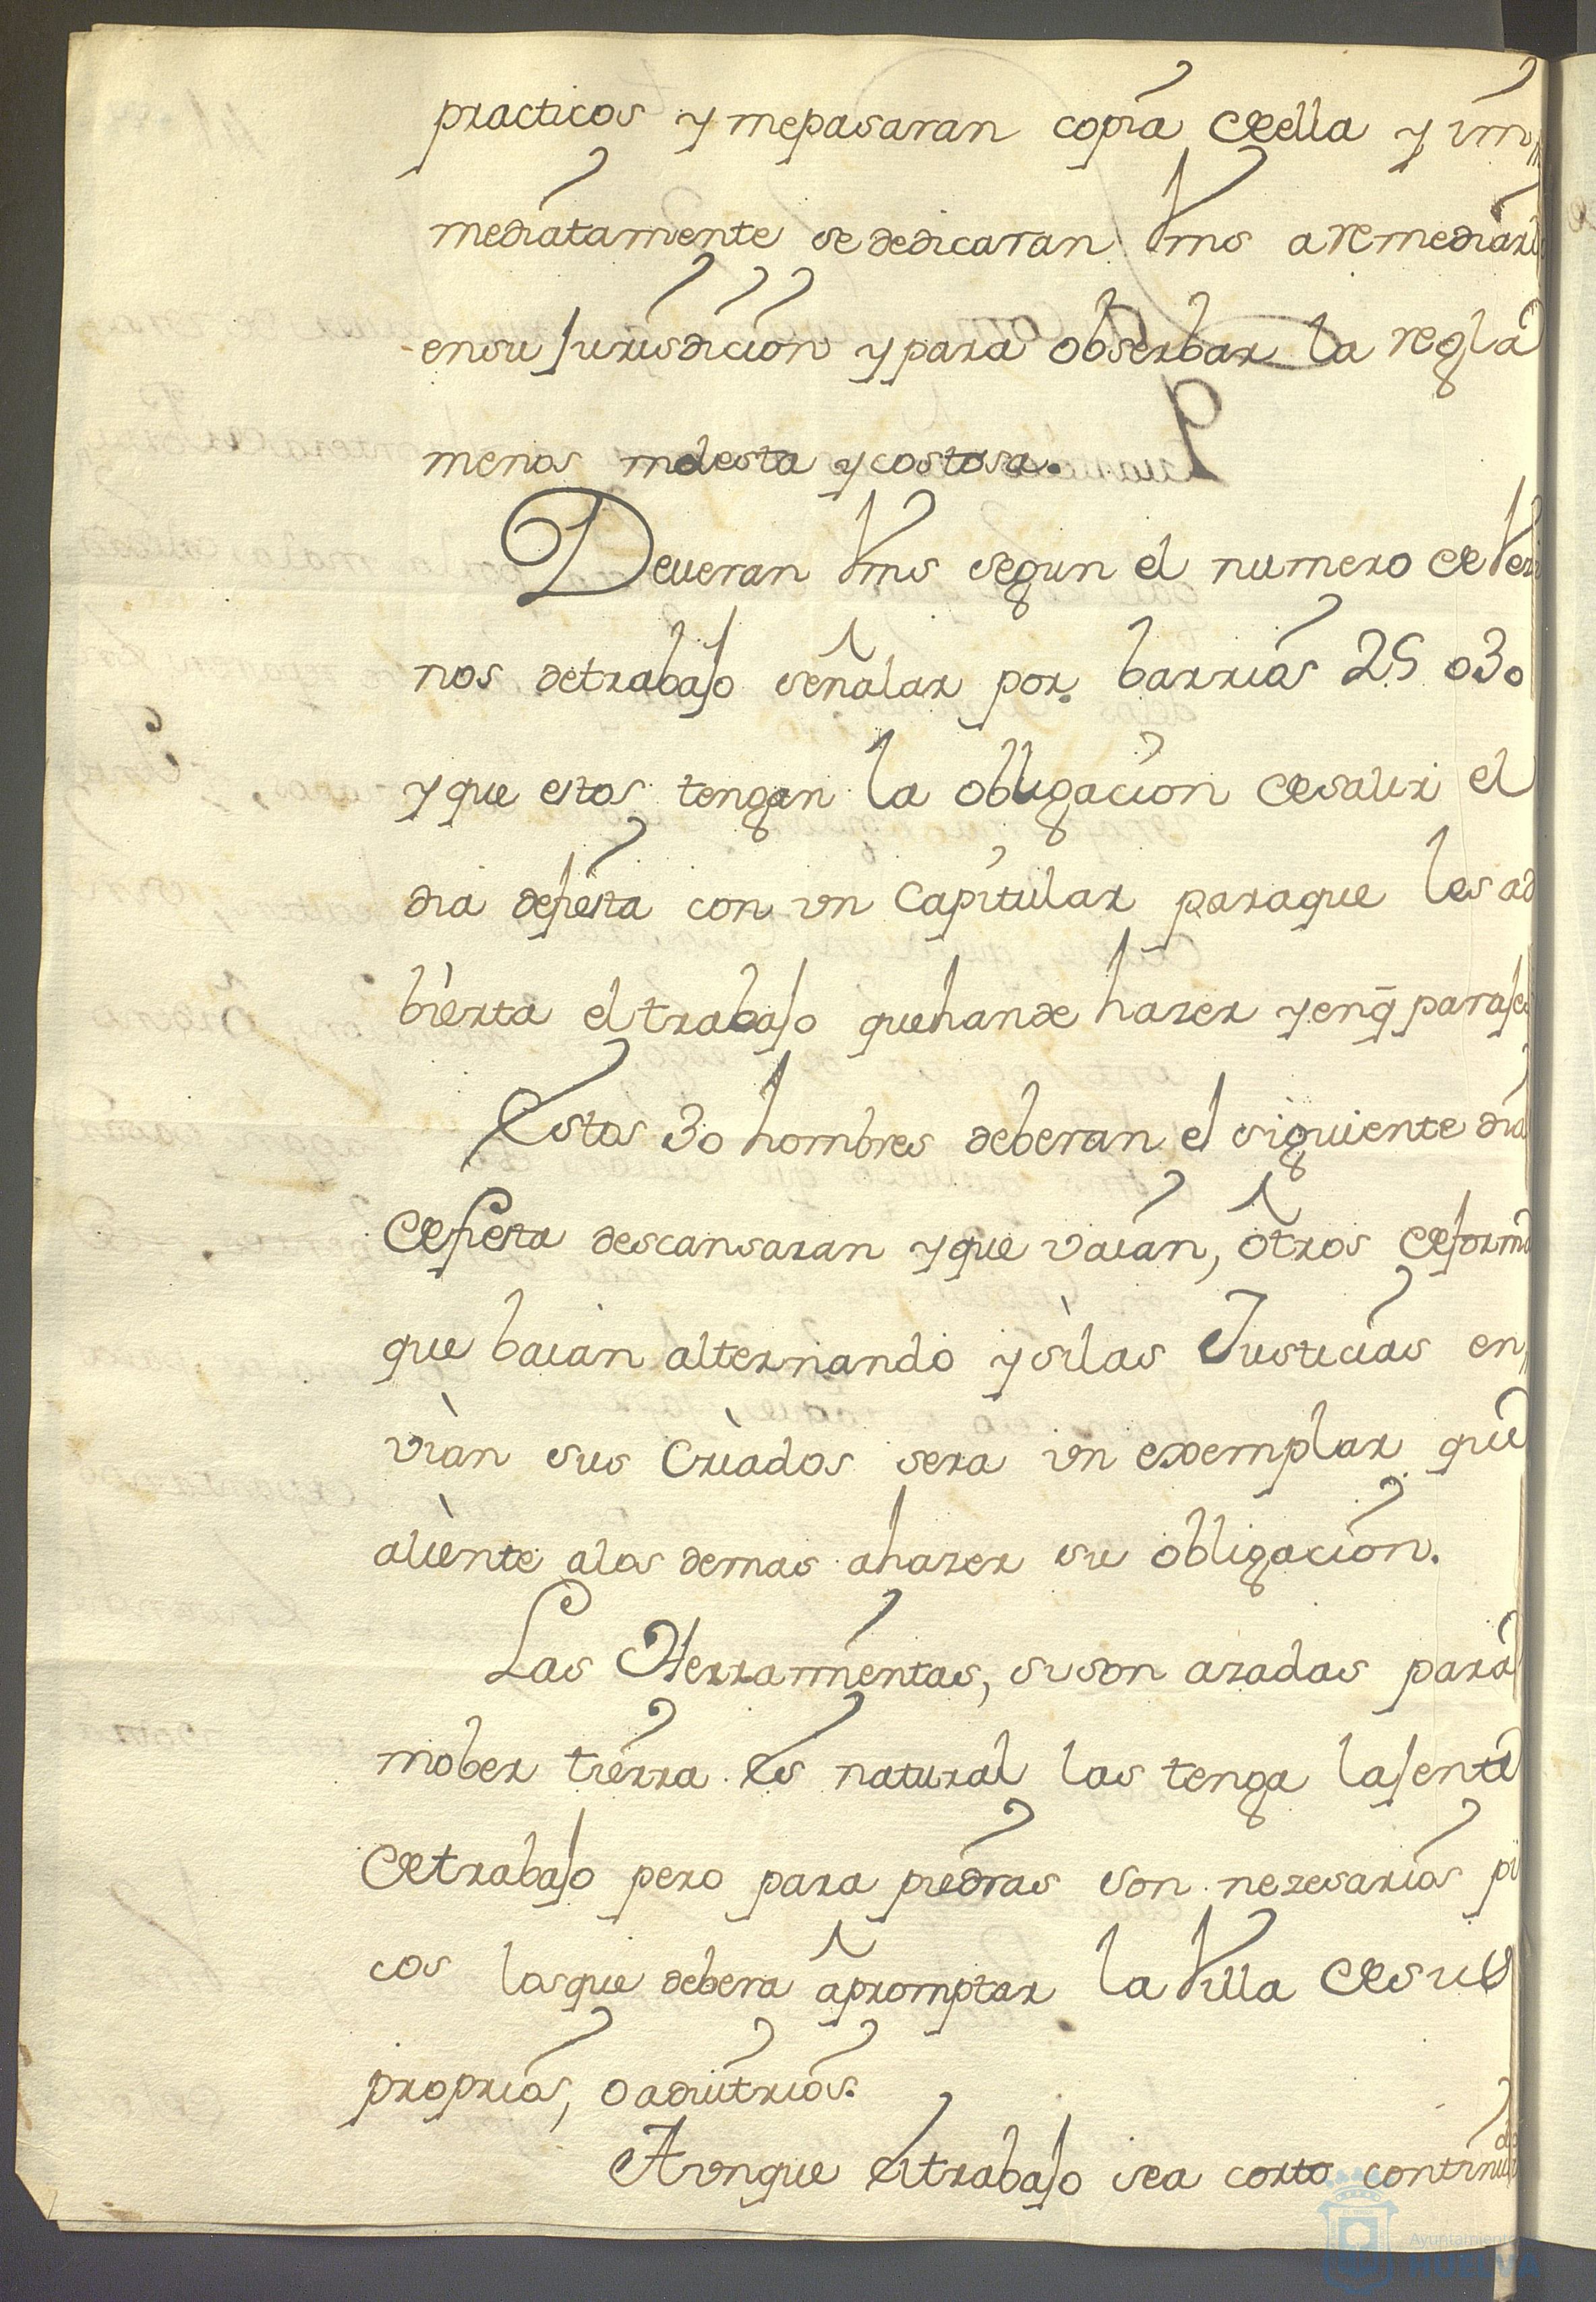 practicos y mepasaran copia de ella y im
mediatamente se dedicaran Vms a remediarlo
ensu Jurisdicion y para obserbar la regla
menos molesta y costosa.
Deveran Vms segun el numero de Vezi
nos detrabajo señalar por barrios 25 o 30
y que estos tengan la obligacion desalir el
dia defiesta con vn Capitular paraque les ad
bierta el trabajo quehande hazer y enq̄ parajes
Estos 30 hombres deberan el siguiente dia
de fiesta descansaran y que vaian, otros deforma
que baian alternando y silas Justicias en
vian sus Criados sera vn exemplar que
aliente alos demas ahazer su obligacion.
Las Herramientas, si son azadas para
mober tierra es natural las tenga lajente
detrabajo pero para piedras son nezesarios pi
cos losque debera apromptar la Villa desus
proprios, o advitrios.
Avnque el trabajo sea corto continuado
Ayuntamiento
HUELVA